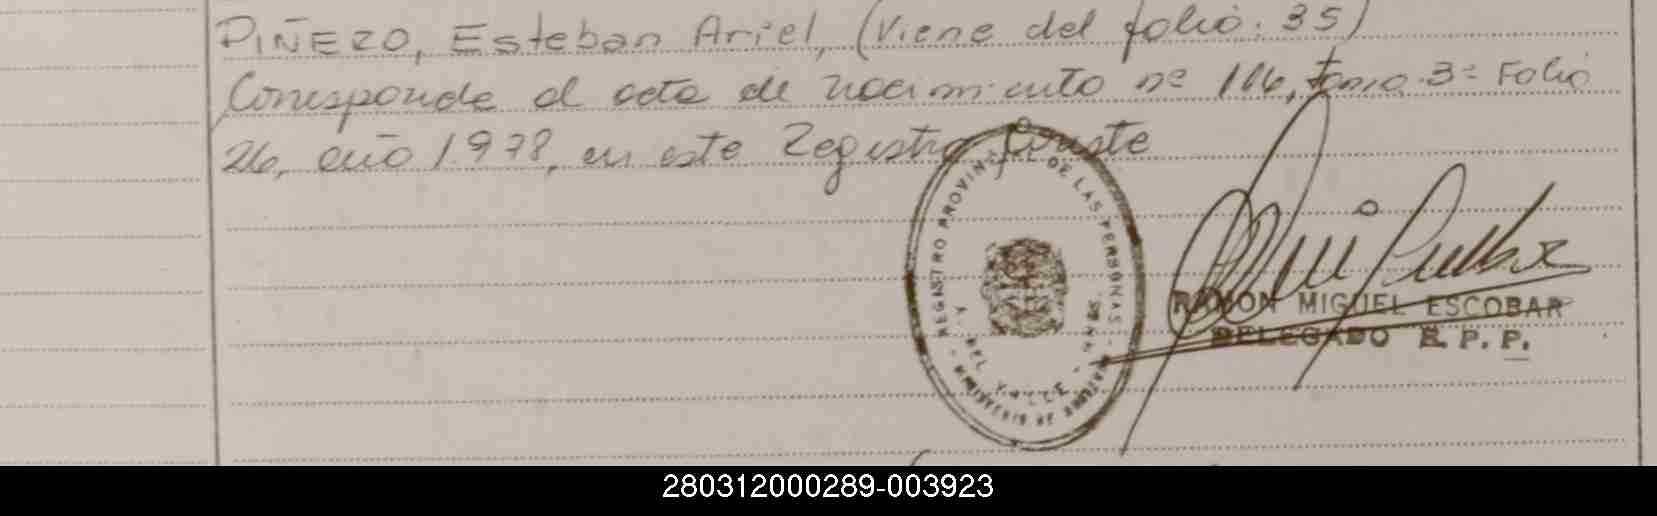 PIÑEZO, Esteban Ariel, (Viene del folio: 35)
Corresponde al acta de nacimiento nº 116, tomo 3º Folio
26, año 1978, en este Registro Conste
REGISTRO PROVINCIAL DE LAS PERSONAS
DEL VALLE
RAMON MIGUEL ESCOBAR
DELEGADO R. P. P.
280312000289-003923